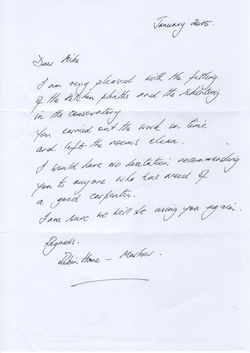 January 2015.
Dear Mike
I am very pleased with the fitting
of the kitchen plinths and the skirting
in the conservatory.
You carried out the work on time
and left the rooms clean.
I would have no hesitation recommending
you to anyone who has need of
a good carpenter.
I am sure we will be using you again.
Regards.
Robin - Marlow.